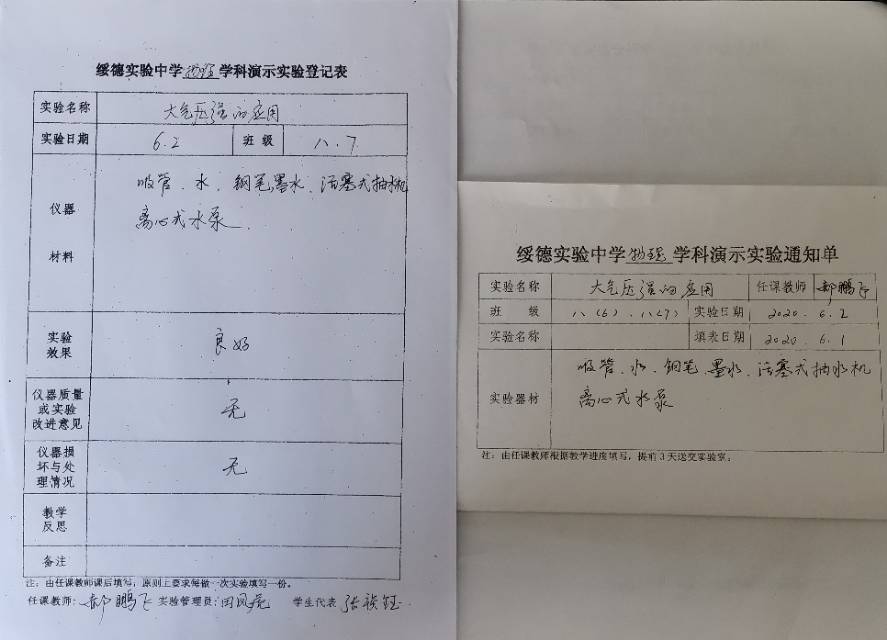 绥德实验中学物理学科演示实验登记表
实验名称 大气压强的应用
实验日期 6.2 班级 八.7
仪器
材料
吸管、水、钢笔、墨水、活塞式抽水机
离心式水泵
实验
效果
良好
仪器质量
或实验
改进意见
无
仪器损
坏与处
理情况
无
教学
反思
备注
注：由任课教师课后填写，原则上要求每做一次实验填写一份。
任课教师：郝鹏飞 实验管理员：田凤 学生代表 张 钰
绥德实验中学物理学科演示实验通知单
实验名称 大气压强的应用 任课教师 郝鹏飞
班级 八(6)、八(7) 实验日期 2020.6.2
实验名称 填表日期 2020.6.1
实验器材
吸管、水、钢笔、墨水、活塞式抽水机
离心式水泵
注：由任课教师根据教学进度填写，提前3天送交实验室。